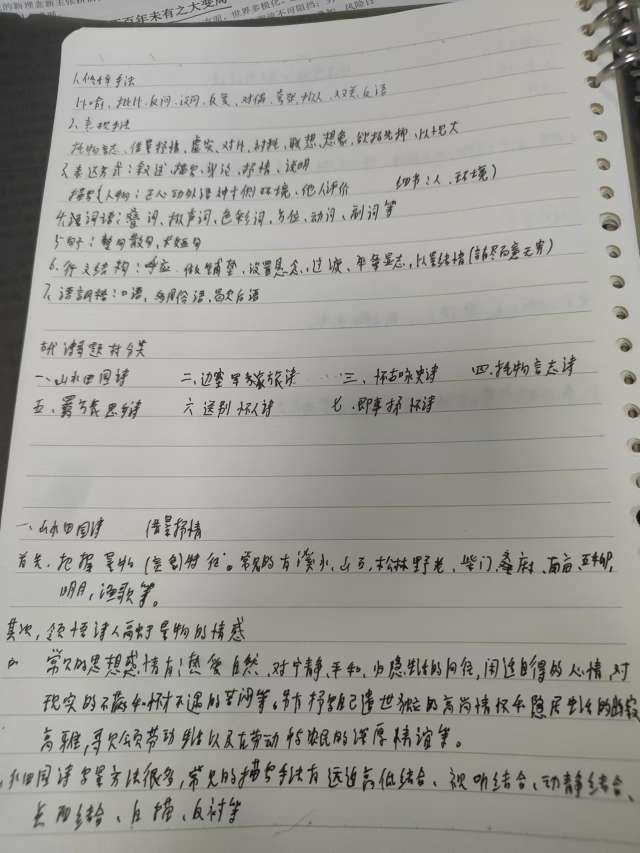 百年未有之大变局
世界多极化
不可阻挡
风险日
1.修辞手法
比喻、排比、反问、设问、反复、对偶、夸张、拟人、双关、反语
2.表现手法
托物言志、借景抒情、虚实、对比、衬托、联想、想象、欲扬先抑、以小见大
3.表达方式：叙述、描写、议论、抒情、说明
描写（人物：正心动外语神 侧环境、他人评价 细节：人、环境）
4.炼词语：叠词、拟声词、色彩词、方位、动词、副词等
5.句子：整句散句、长短句
6.行文结构：呼应、做铺垫、设置悬念、过渡、卒章显志、以景结情（言有尽而意无穷）
7.语言风格：口语
古代诗歌题材分类
一、山水田园诗 二、边塞 诗 三、怀古咏史诗 四.托物言志诗
五、思乡诗 六 送别怀人诗 七.即事抒怀诗
一、山水田园诗 借景抒情
首先.把握景物（意象）特征。常见的有溪水、山石、松林野老、柴门、桑麻、南亩、五柳、
明月，渔歌等。
其次，领悟诗人融于景物的情感
常见的思想感情有：热爱自然、对宁静、平和、归隐生活的向往，闲适自得的心情，对
现实的不满和怀才不遇的苦闷等。另有抒写自己遗世独立的高尚情怀和隐居生活的
高雅，或歌颂劳动生活以及在劳动 农民的深厚情谊等。
水田园诗写景方法很多，常见的描写手法有 远近高低结合、视听结合、动静结合、
结合、白描、反衬等